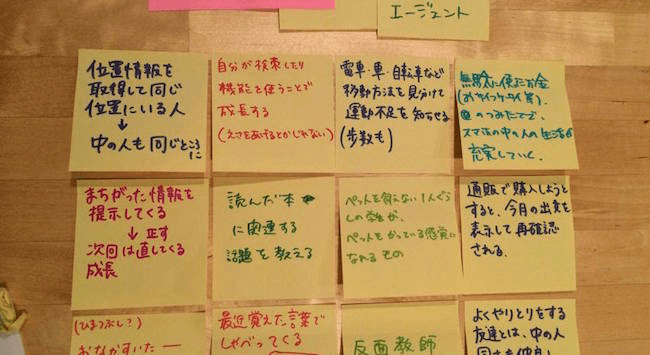 エージェント
位置情報を
取得して同じ
位置にいる人
↓
中の人も同じところに
自分が検索したり
機能を使うことで
成長する
(えさをあげるとかじゃない)
電車・車・自転車など
移動方法を見分けて
運動不足を知らせる
(歩数も)
無駄に使ったお金
(おサイフケータイ等)
のつみたてで、
スマホの中の人の生活が
充実していく。
まちがった情報を
提示してくる
↓正す
次回は直してくる
成長
読んだ本
に関連する
話題を教える
ペットを飼えない1人ぐら
しの学生が、
ペットをかっている感覚に
なれるもの
通販で購入しようと
すると、今月の出費を
表示して再確認
される。
(ひまつぶし?)
おなかすいたー
最近覚えた言葉で
しゃべってくる
反面教師
よくやりとりをする
友達とは、中の人